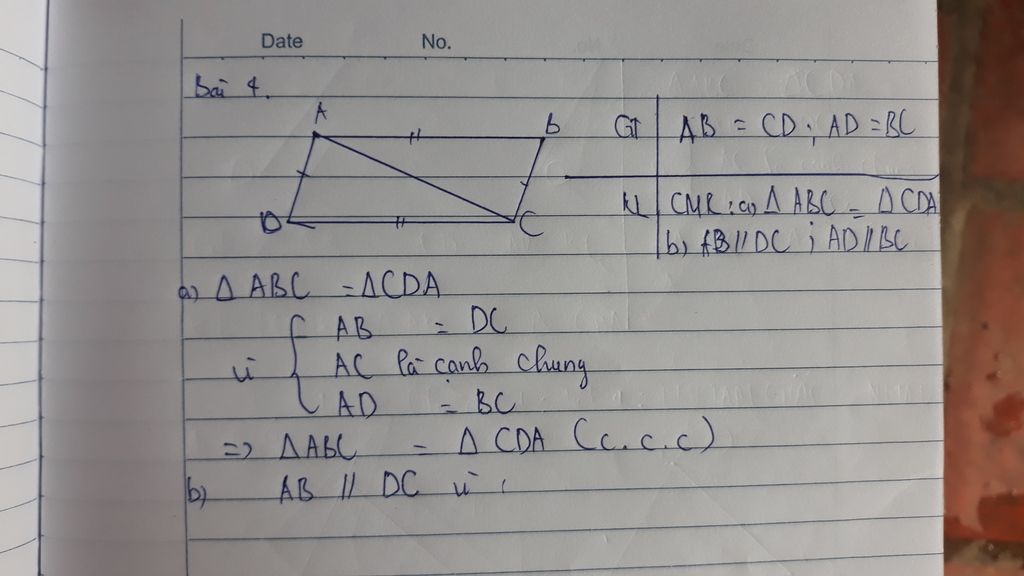 Date No.
Bài 4.
A B
D C
GT AB = CD ; AD = BC
KL CMR : a) Δ ABC = Δ CDA
b) AB // DC ; AD // BC
a) Δ ABC = Δ CDA
AB = DC
vì AC là cạnh chung
AD = BC
=> Δ ABC = Δ CDA (c.c.c)
b) AB // DC vì